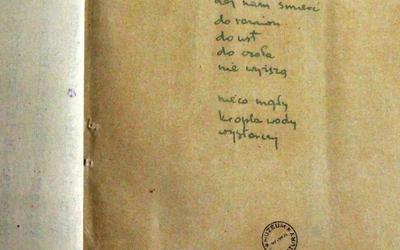 daj nam śmierć
do ramion
do ust
do czoła
nie wyższą

nieco mgły
kropla wody
wystarczy

MUZEUM